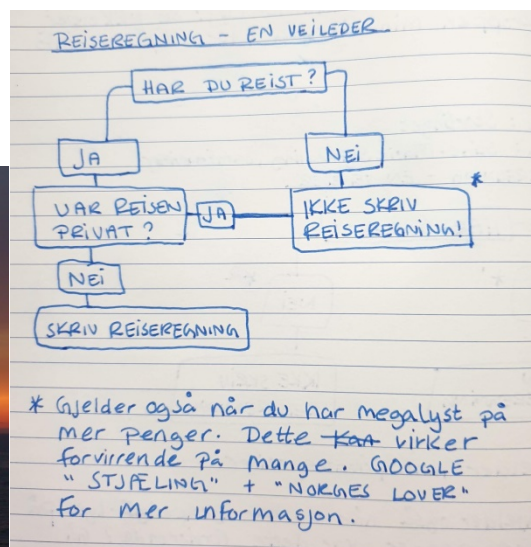 REISEREGNING - EN VEILEDER
HAR DU REIST?
JA
NEI
VAR REISEN
PRIVAT?
JA
IKKE SKRIV
REISEREGNING!
*
NEI
SKRIV REISEREGNING
* Gjelder også når du har megalyst på
mer penger. Dette kan virker
forvirrende på mange. GOOGLE
"STJÆLING" + "NORGES LOVER"
for mer informasjon.